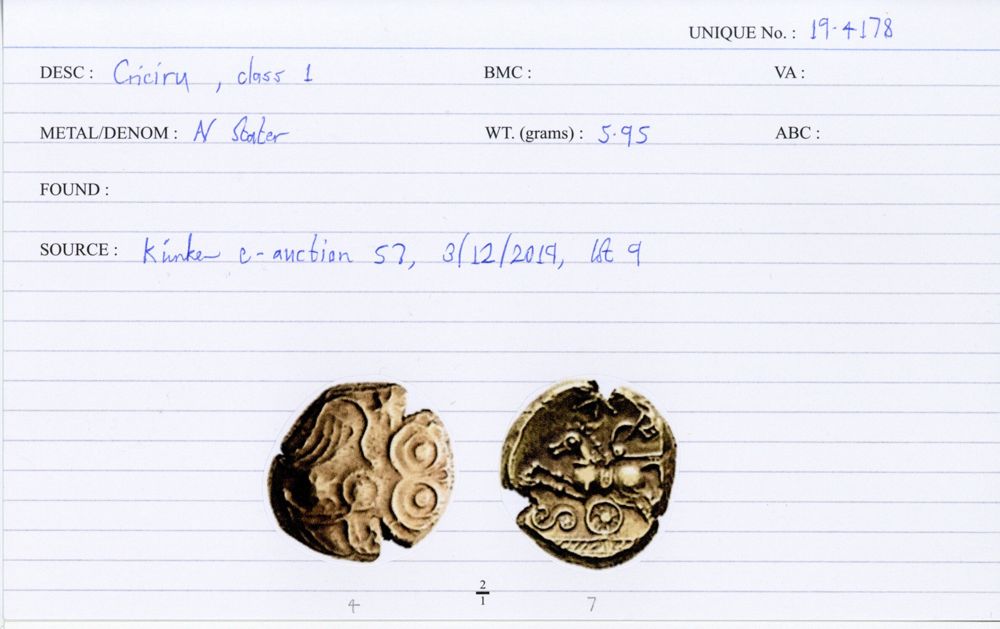 UNIQUE No. : 19·4178
DESC : Criciru, class 1 BMC : VA :
METAL/DENOM : N Stater WT. (grams) : 5.95 ABC :
FOUND :
SOURCE : Künker e-auction 57, 3/12/2019, lot 9
2
1
4 7